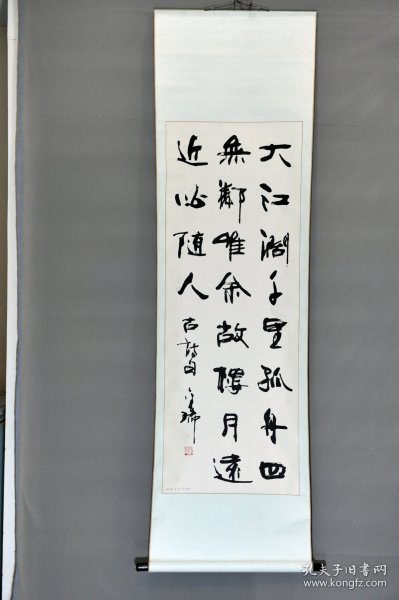 大江濶千里孤舟四
無鄰唯余故樓月遠
近必随人 古詩句
孔夫子旧书网
www.kongfz.com